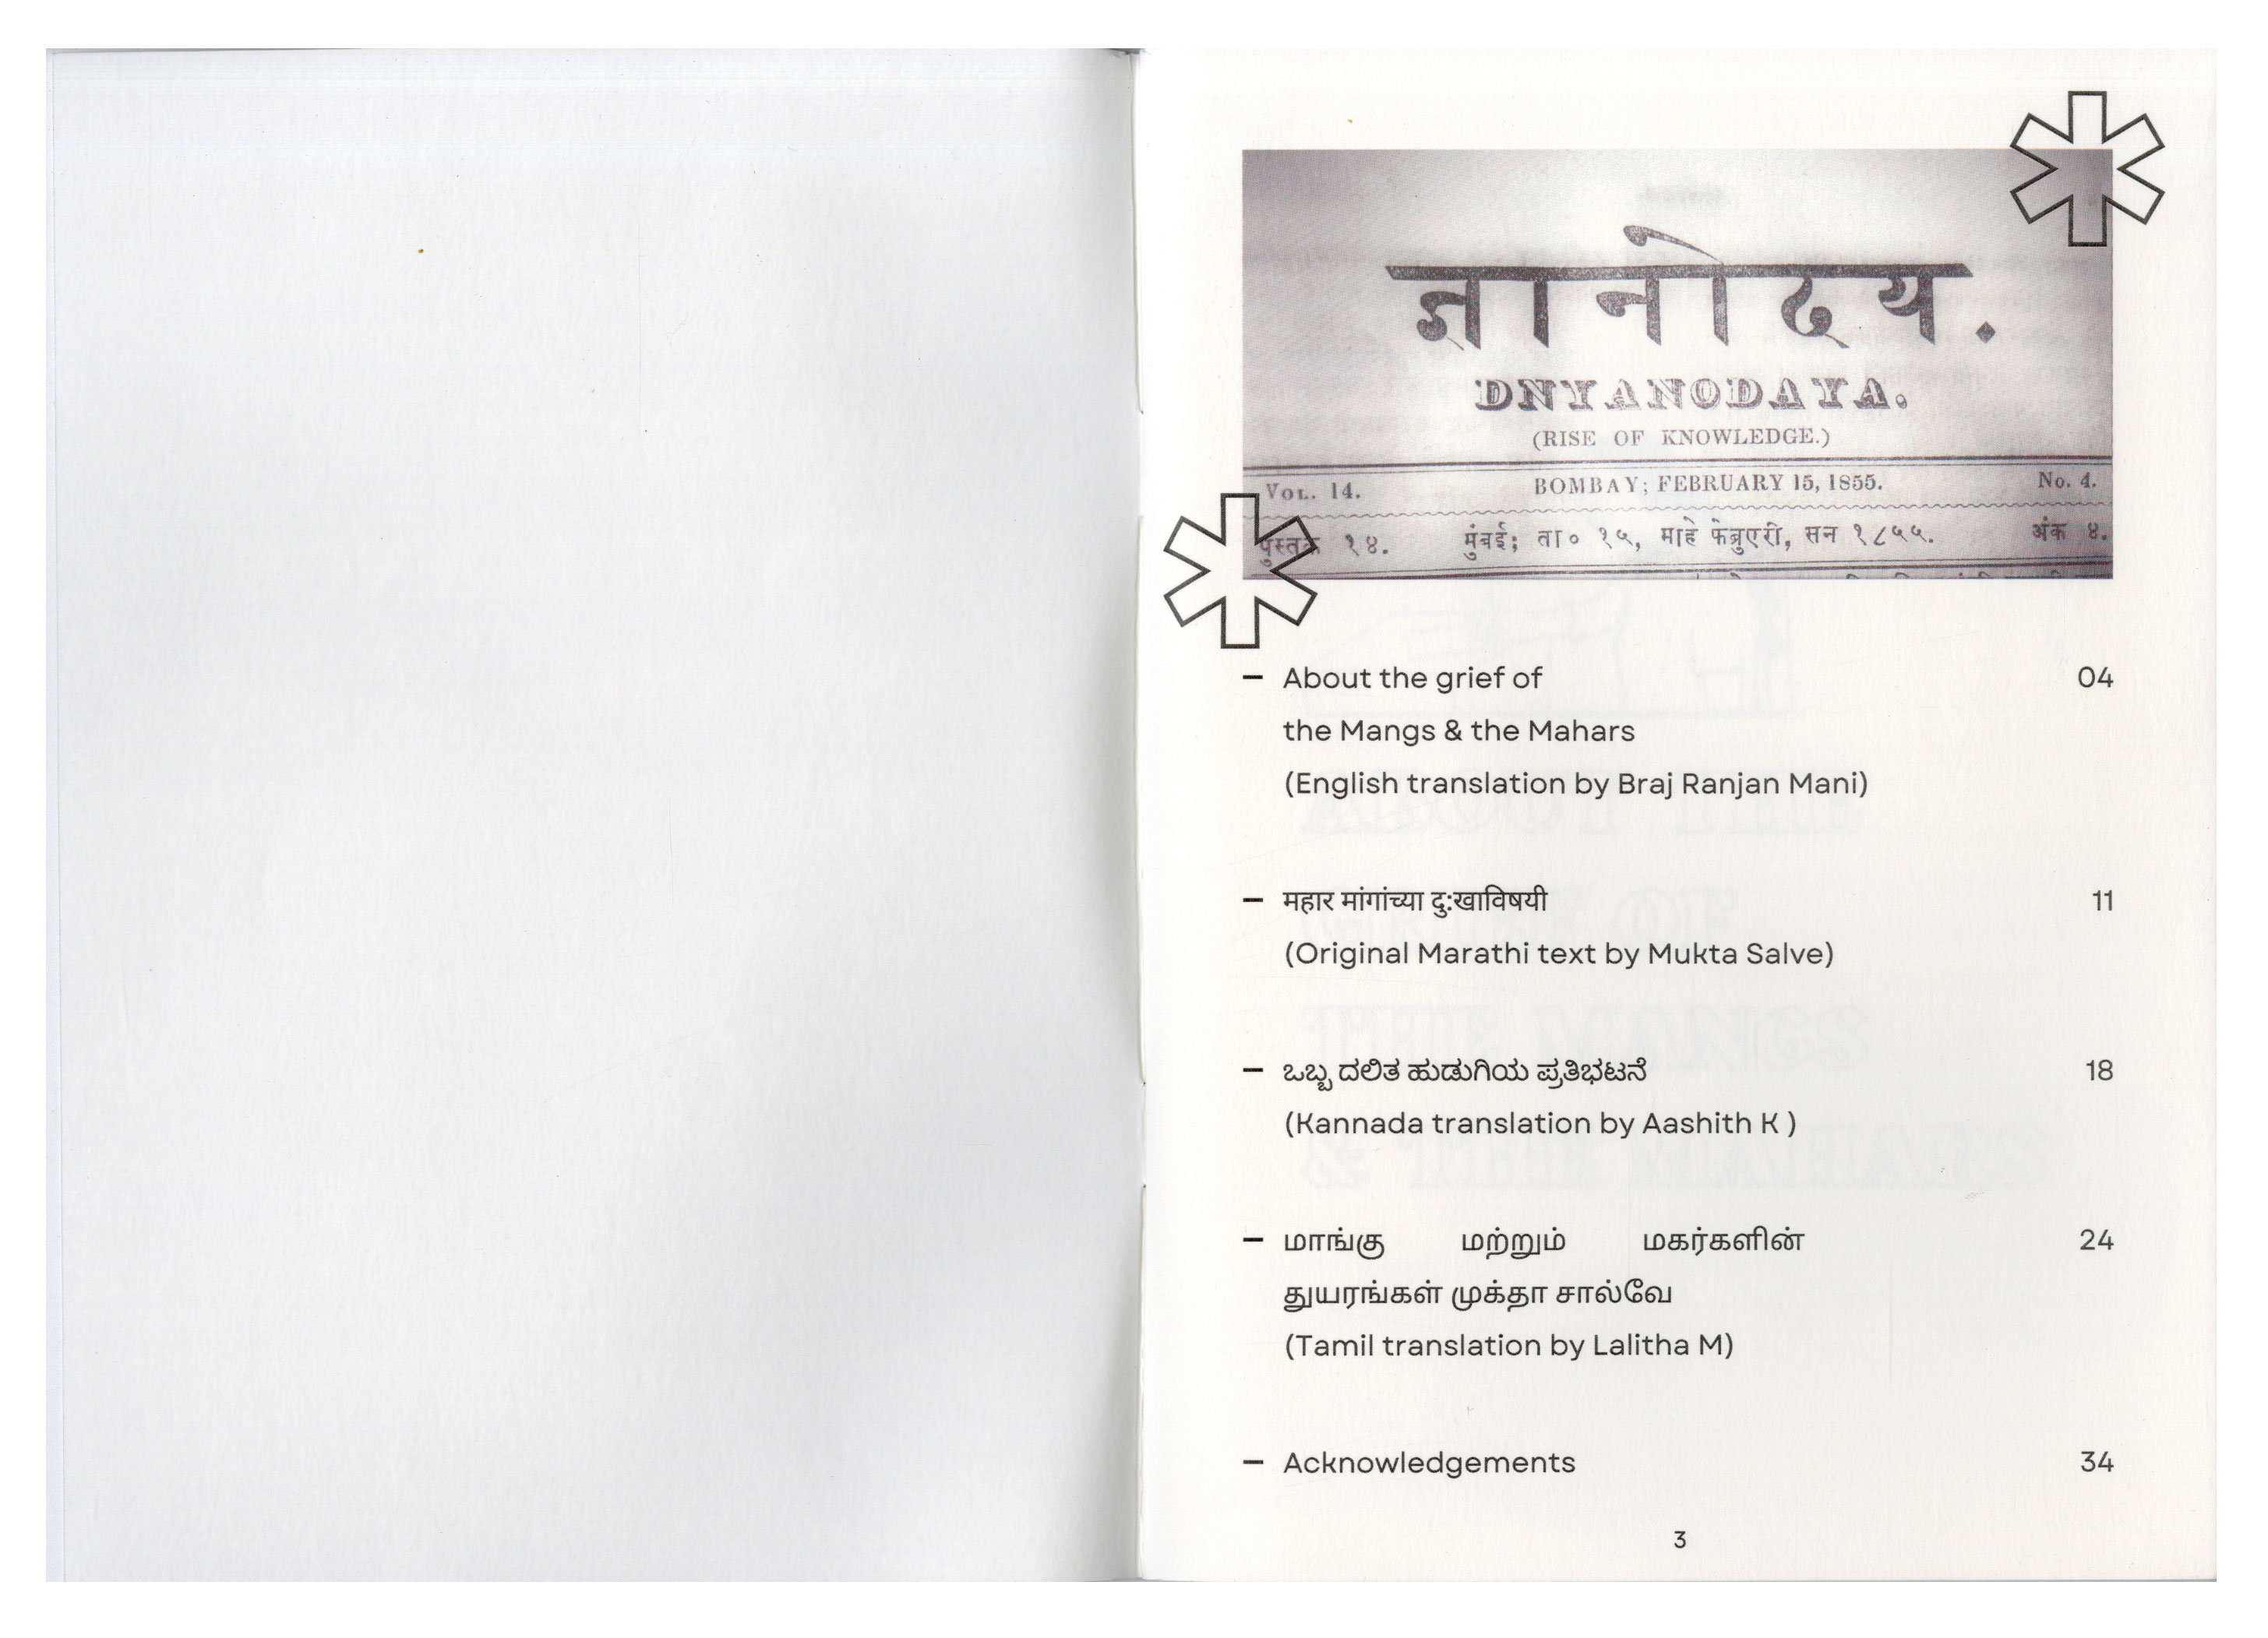 ज्ञानोदय.
DNYANODAYA.
(RISE OF KNOWLEDGE.)
VOL. 14. BOMBAY; FEBRUARY 15, 1855. No. 4.
पुस्तक १४. मुंबई; ता० १५, माहे फेब्रुएरी, सन १८५५. अंक ४.
– About the grief of 04
the Mangs & the Mahars
(English translation by Braj Ranjan Mani)
– महार मांगांच्या दु:खाविषयी 11
(Original Marathi text by Mukta Salve)
– ಒಬ್ಬ ದಲಿತ ಹುಡುಗಿಯ ಪ್ರತಿಭಟನೆ 18
(Kannada translation by Aashith K )
– மாங்கு மற்றும் மகர்களின் 24
துயரங்கள் முக்தா சால்வே
(Tamil translation by Lalitha M)
– Acknowledgements 34
3